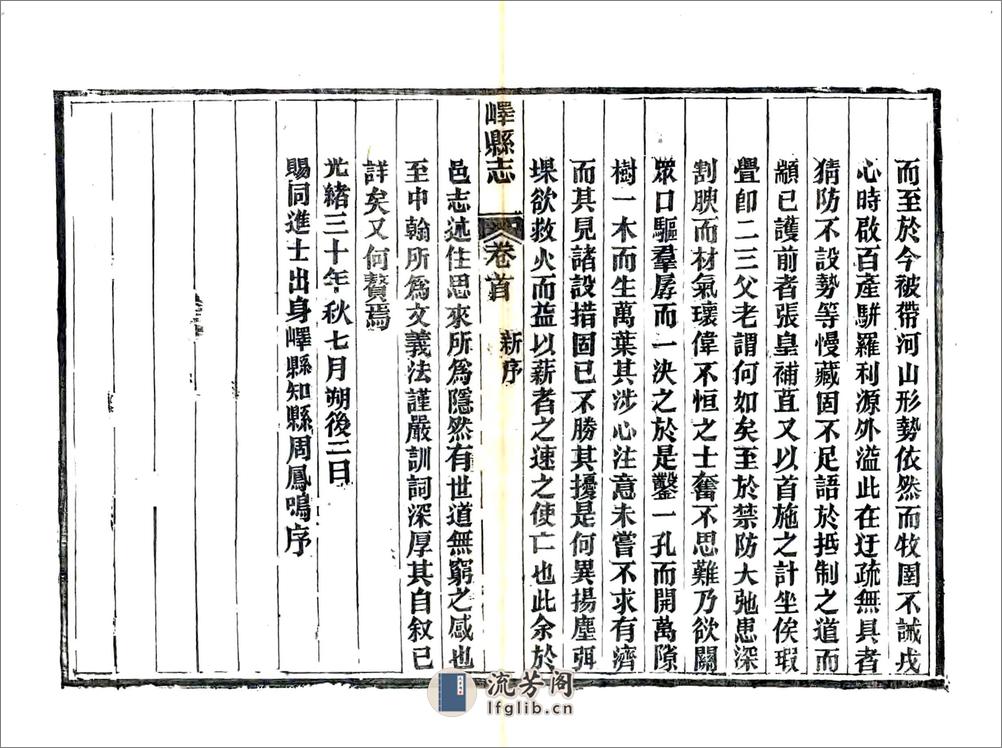 而至於今被帶河山形勢依然而牧圉不誡戎
心時啟百產駢羅利源外溢此在迂疏無具者
猜防不設勢等慢藏固不足語於抵制之道而
顓己護前者張皇補苴又以首施之計坐俟瑕
釁卽二三父老謂何如矣至於禁防大弛患深
割腴而材氣瓌偉不恒之士奮不思難乃欲關
眾口驅羣孱而一決之於是鑿一孔而開萬隙
樹一木而生萬葉其涉心注意未嘗不求有濟
而其見諸設措固已不勝其擾是何異揚塵弭
堁欲救火而益以薪者之速之使亡也此余於
嶧縣志 卷首 新序
邑志述往思來所為隱然有世道無窮之感也
至中翰所為文義法謹嚴訓詞深厚其自叙已
詳矣又何贅焉
光緒三十年秋七月朔後二日
賜同進士出身嶧縣知縣周鳳鳴序
流芳阁
lfglib.cn